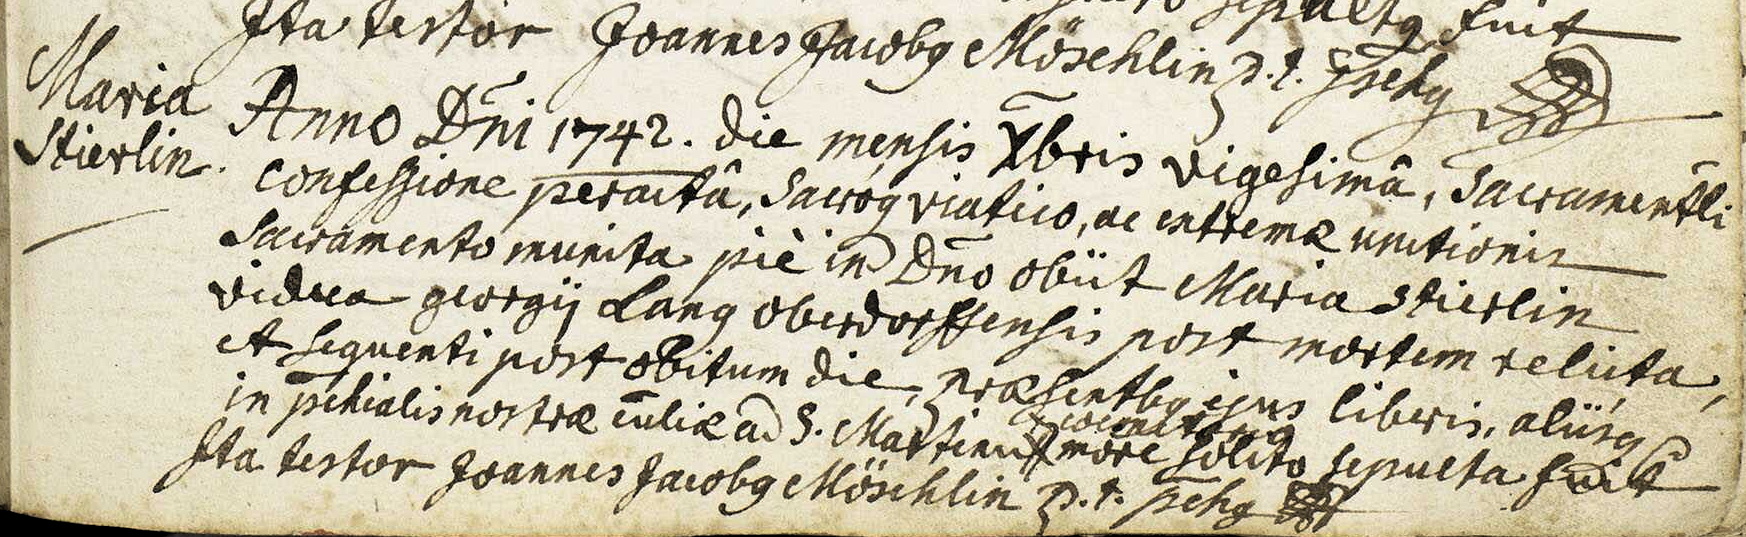 sepultq fuit
Ita testor Joannes Jacobq Möschlin p. t. pchq
Maria
Stierlin.
Anno Dni 1742. die mensis Xbris vigesimâ, Sacramentli
confessione peractâ, Sacroq viatico, ac extremæ unctionis
Sacramento munita piè in Dno obiit Maria Stierlin
vidua georgij Lang oberdorffensis post mortem relicta,
et sequenti post obitum die, præsentbq ejus liberis, aliisq
in pchialis nostræ eccliæ ad S. Martinu coemeterio more solito sepulta fuit
Ita testor Joannes Jacobq Möschlin p. t. pchq